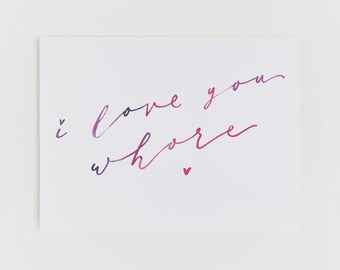 i love you
whore